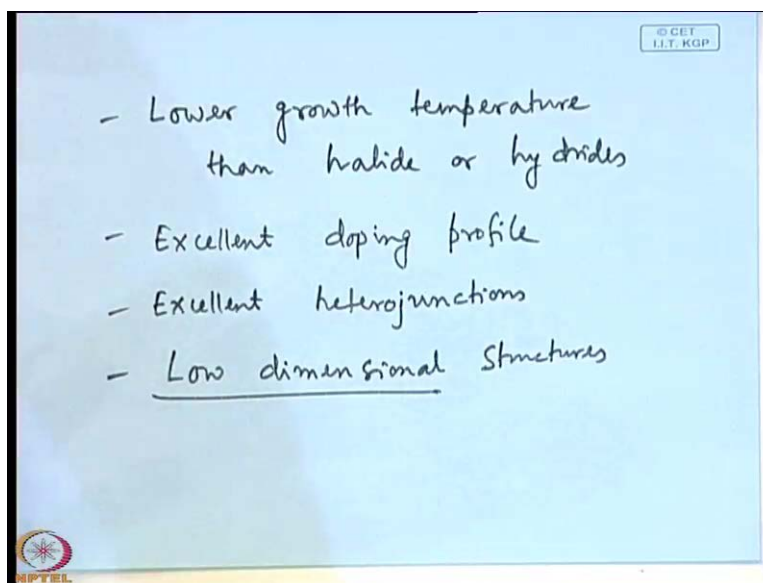 © CET
I.I.T. KGP
- Lower growth temperature
than halide or hydrides
- Excellent doping profile
- Excellent heterojunctions
- Low dimensional structures
NPTEL